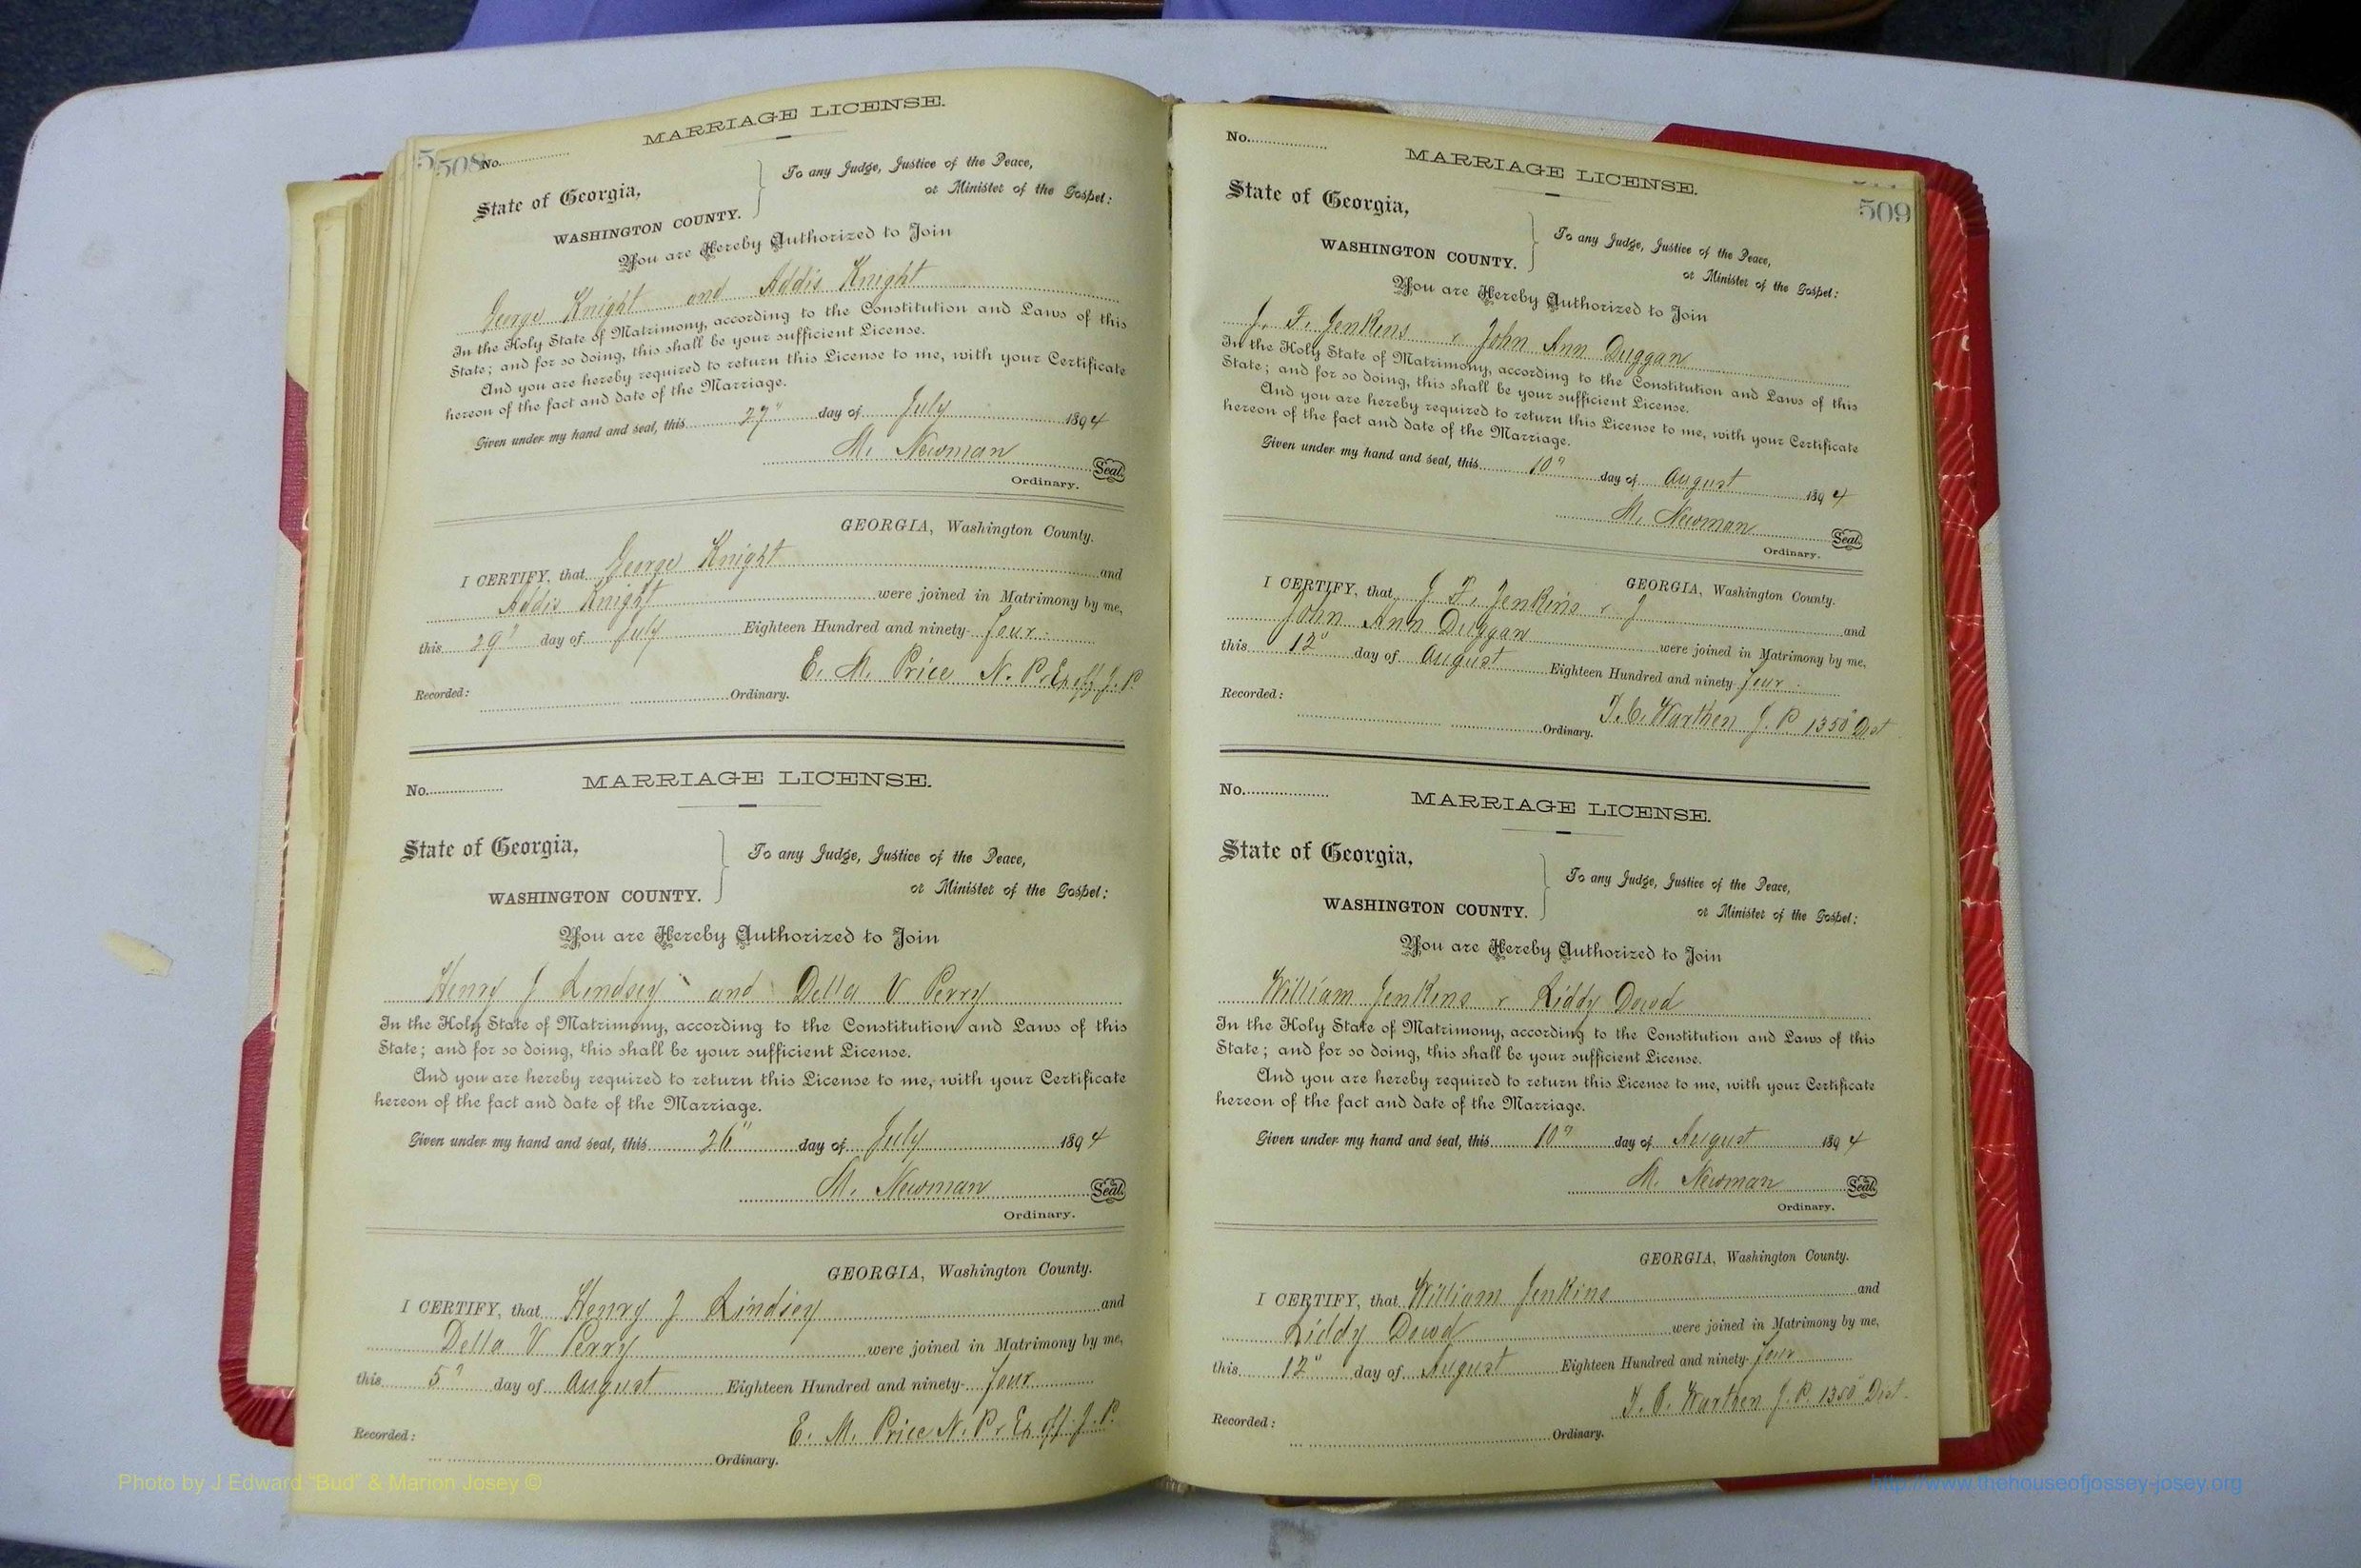 MARRIAGE LICENSE.
508 No.
State of Georgia,
WASHINGTON COUNTY.
To any Judge, Justice of the Peace,
or Minister of the Gospel:
You are Hereby Authorized to Join
George Knight and Addis Knight
In the Holy State of Matrimony, according to the Constitution and Laws of this
State; and for so doing, this shall be your sufficient License.
And you are hereby required to return this License to me, with your Certificate
hereon of the fact and date of the Marriage.
Given under my hand and seal, this 27" day of July 1894
M. Newman Seal.
Ordinary.
GEORGIA, Washington County.
I CERTIFY, that George Knight and
Addis Knight were joined in Matrimony by me,
this 29" day of July Eighteen Hundred and ninety-four
E. M. Price N. P. & Ex off J. P.
Recorded: Ordinary.
No. MARRIAGE LICENSE.
State of Georgia,
WASHINGTON COUNTY.
To any Judge, Justice of the Peace,
or Minister of the Gospel:
You are Hereby Authorized to Join
Henry J Lindsey and Della V Perry
In the Holy State of Matrimony, according to the Constitution and Laws of this
State; and for so doing, this shall be your sufficient License.
And you are hereby required to return this License to me, with your Certificate
hereon of the fact and date of the Marriage.
Given under my hand and seal, this 26" day of July 1894
M. Newman Seal.
Ordinary.
GEORGIA, Washington County.
I CERTIFY, that Henry J Lindsey and
Della V Perry were joined in Matrimony by me,
this 5" day of August Eighteen Hundred and ninety-four
E. M. Price N. P. & Ex off. J. P.
Recorded: Ordinary.
No. MARRIAGE LICENSE.
509
State of Georgia,
WASHINGTON COUNTY.
To any Judge, Justice of the Peace,
or Minister of the Gospel:
You are Hereby Authorized to Join
J. F. Jenkins & John Ann Duggan
In the Holy State of Matrimony, according to the Constitution and Laws of this
State; and for so doing, this shall be your sufficient License.
And you are hereby required to return this License to me, with your Certificate
hereon of the fact and date of the Marriage.
Given under my hand and seal, this 10" day of August 1894
M. Newman Seal.
Ordinary.
GEORGIA, Washington County.
I CERTIFY, that J F. Jenkins & J and
John Ann Duggan were joined in Matrimony by me,
this 12" day of August Eighteen Hundred and ninety-four
T. C. Warthen J. P. 1350" Dist
Recorded: Ordinary.
No. MARRIAGE LICENSE.
State of Georgia,
WASHINGTON COUNTY.
To any Judge, Justice of the Peace,
or Minister of the Gospel:
You are Hereby Authorized to Join
William Jenkins & Liddy Dowd
In the Holy State of Matrimony, according to the Constitution and Laws of this
State; and for so doing, this shall be your sufficient License.
And you are hereby required to return this License to me, with your Certificate
hereon of the fact and date of the Marriage.
Given under my hand and seal, this 10" day of August 1894
M. Newman Seal.
Ordinary.
GEORGIA, Washington County.
I CERTIFY, that William Jenkins and
Liddy Dowd were joined in Matrimony by me,
this 12" day of August Eighteen Hundred and ninety-four
T. C. Warthen J. P. 1350" Dist.
Recorded: Ordinary.
Photo by J Edward "Bud" & Marion Josey ©
http://www.thehouseofjossey-josey.org